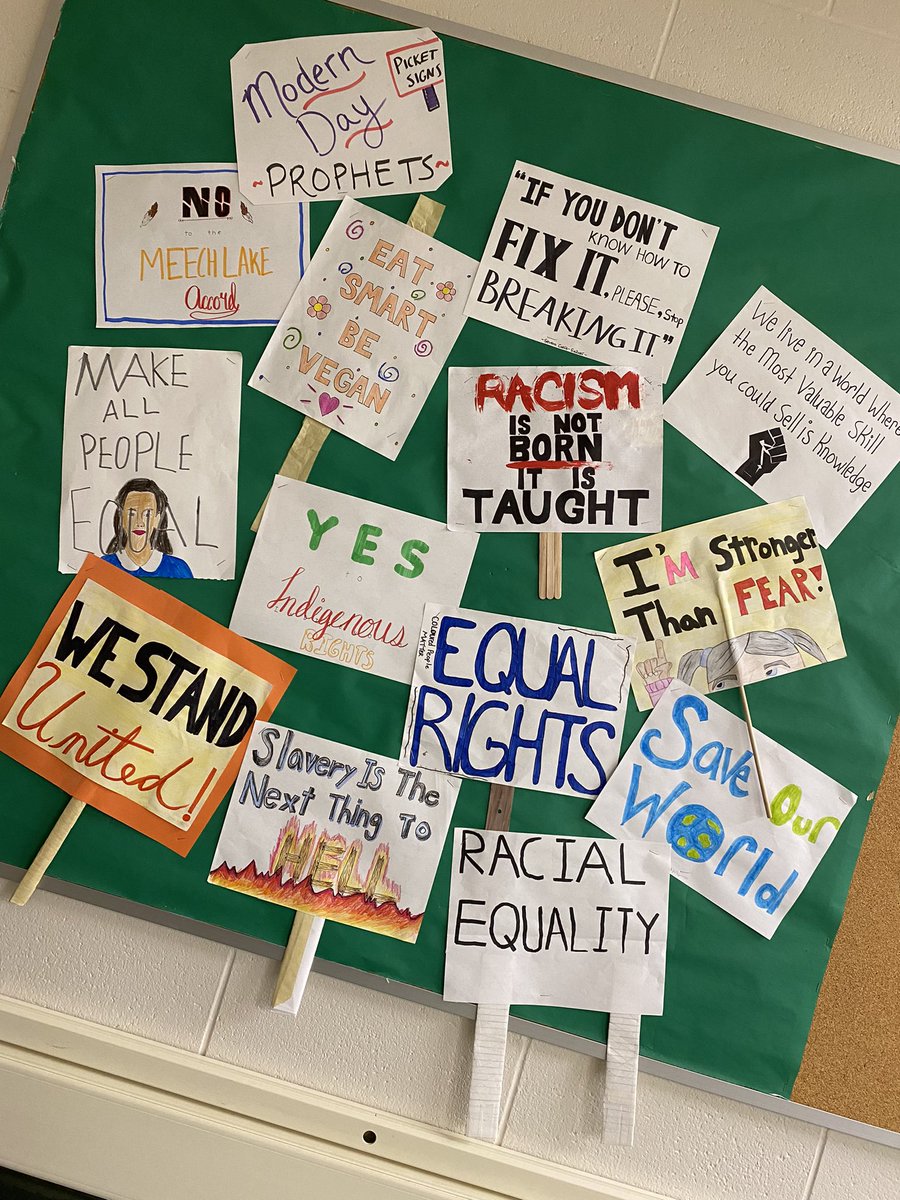 Modern
Day
~PROPHETS~
PICKET
SIGNS
NO
to the
MEECH LAKE
Accord
EAT
SMART
BE
VEGAN
"IF YOU DON'T
KNOW HOW TO
FIX IT,
PLEASE, Stop
BREAKING IT."
We live in a World Where
the Most Valuable Skill
you could Sell is Knowledge
MAKE
ALL
PEOPLE
EQUAL
RACISM
IS NOT
BORN
IT IS
TAUGHT
YES
TO
Indigenous
RIGHTS
I'M Stronger
Than FEAR!
WE STAND
United!
COLORED People
MATTER
EQUAL
RIGHTS
Save Our
World
Slavery Is The
Next Thing To
HELL
RACIAL
EQUALITY